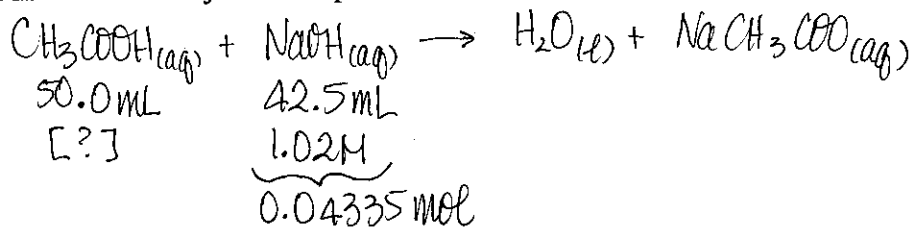 CH₃COOH(aq) + NaOH(aq) → H₂O(l) + NaCH₃COO(aq)
50.0mL 42.5mL
[?] 1.02M
0.04335 mol